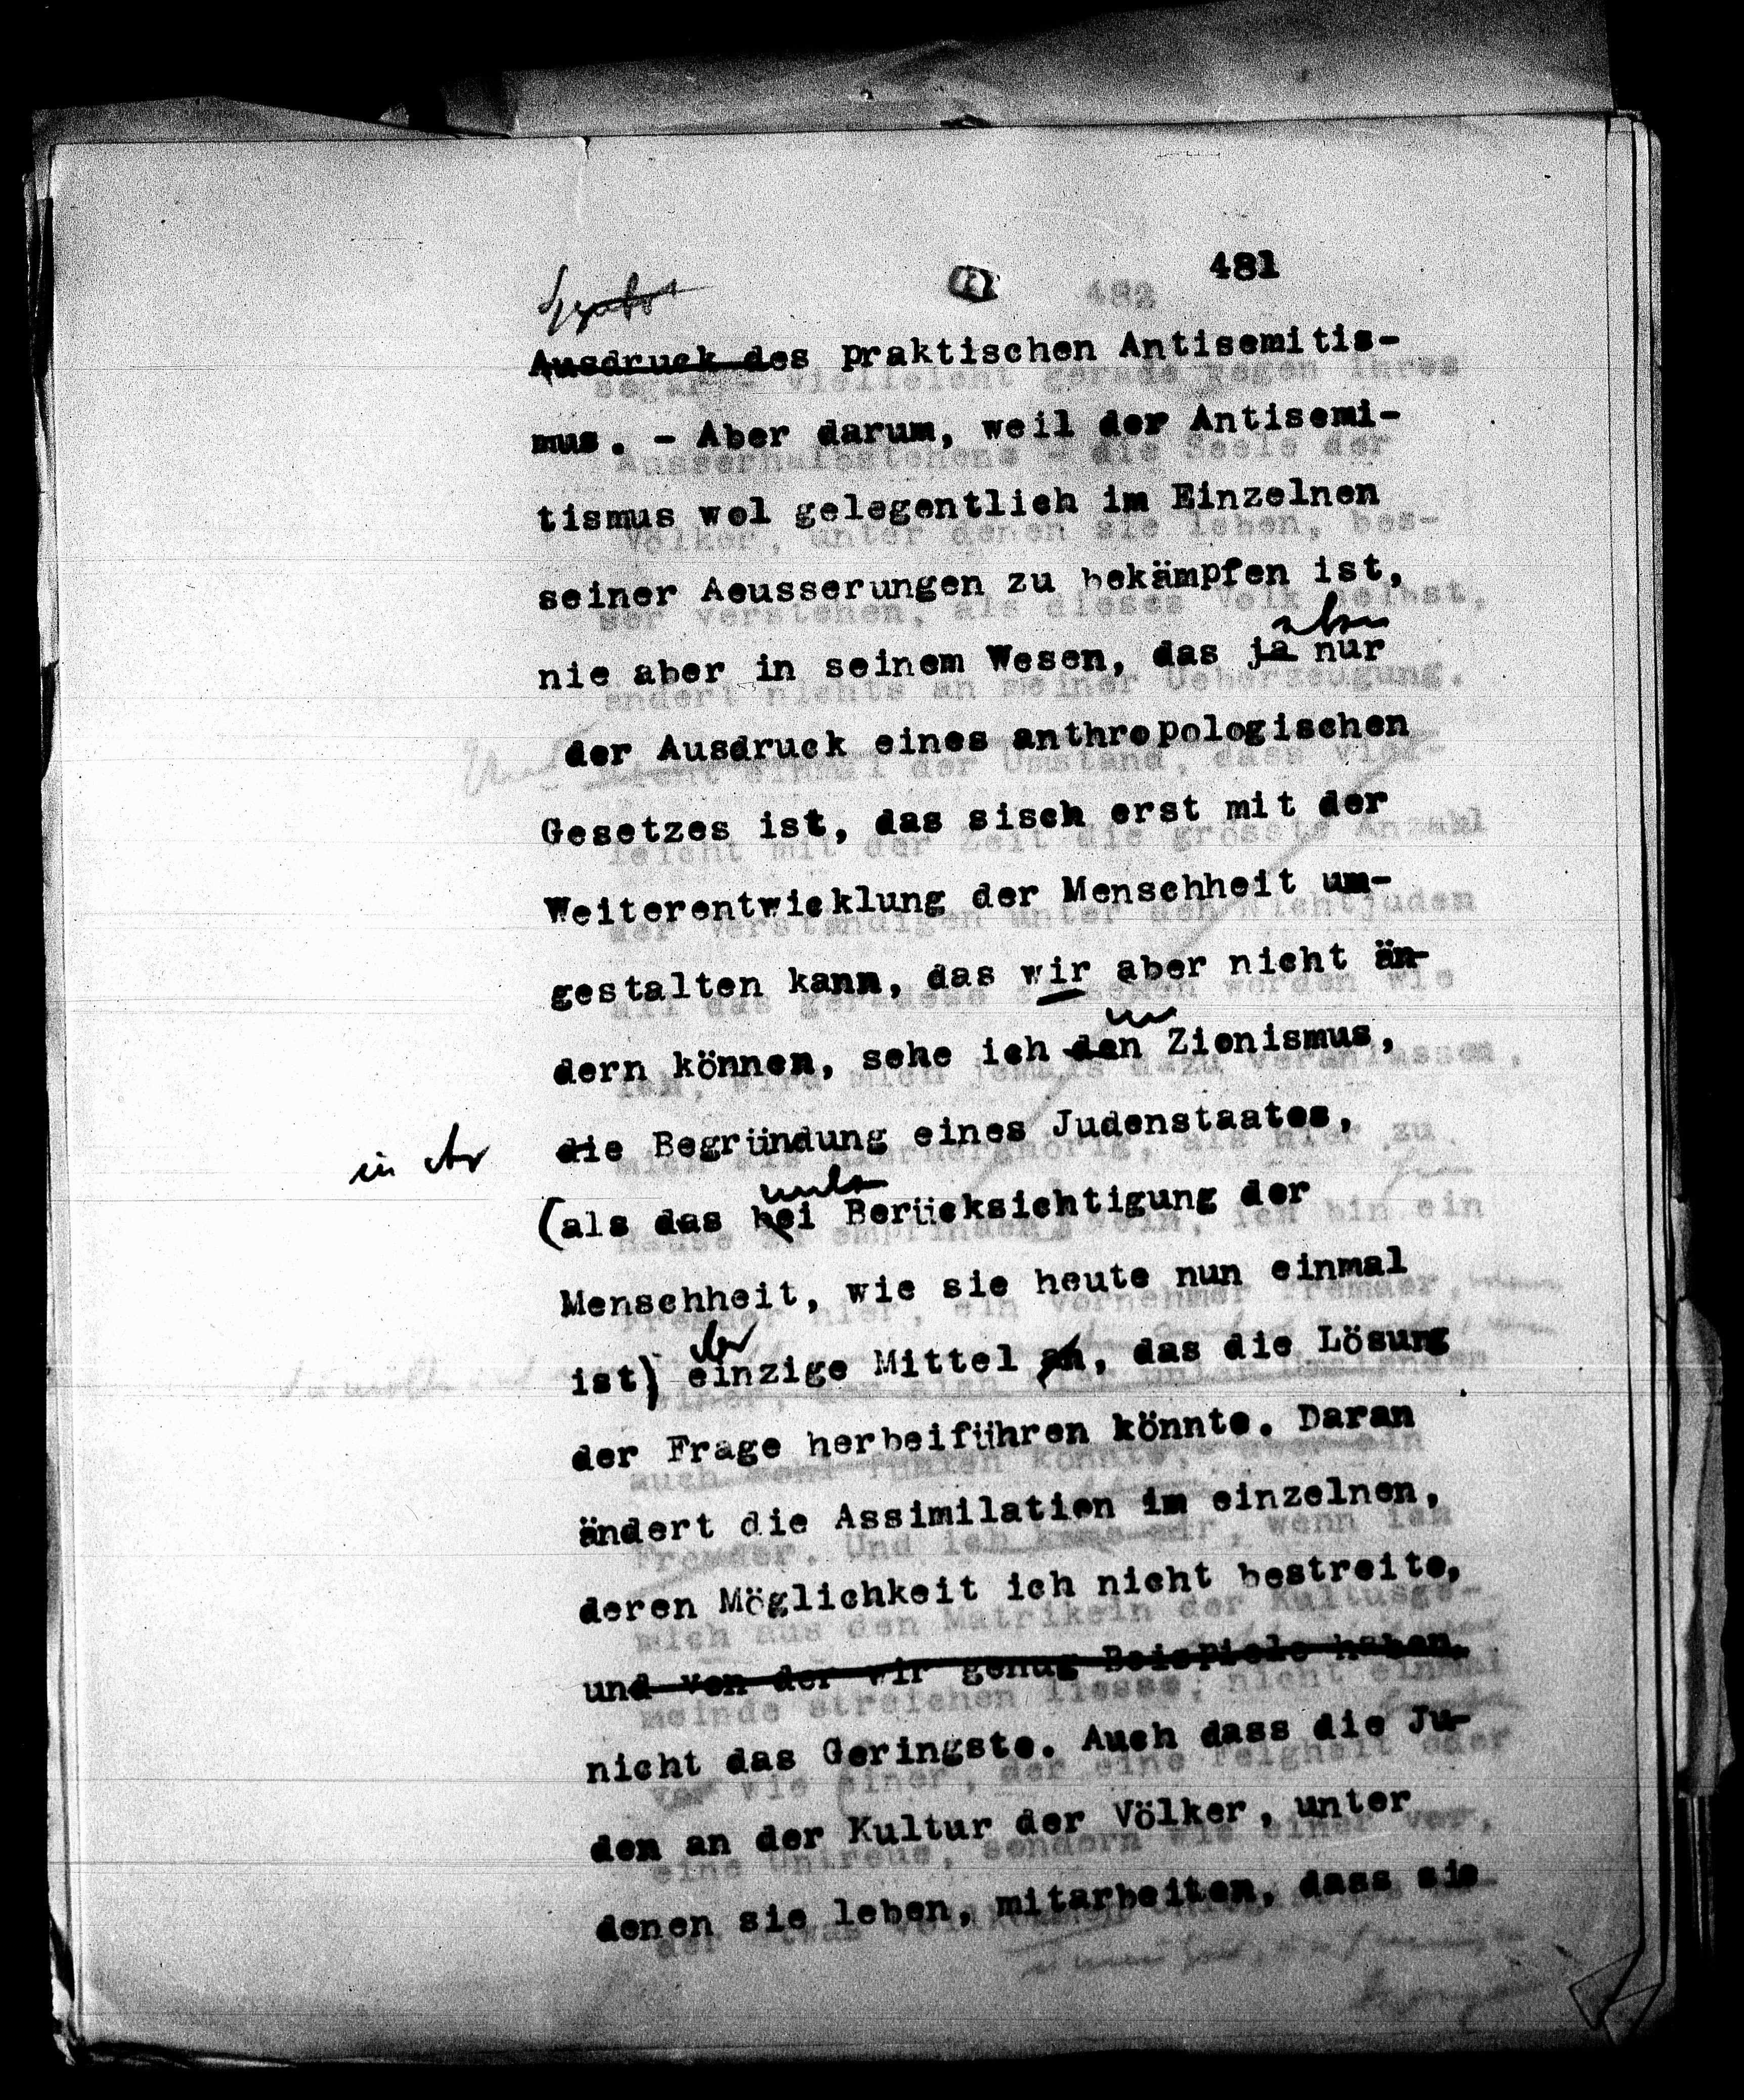 481
Ausdruck des praktischen Antisemitis-
mus. - Aber darum, weil der Antisemi-
tismus wol gelegentlich im Einzelnen
seiner Aeusserungen zu bekämpfen ist,
eben
nie aber in seinem Wesen, das ja nur
der Ausdruck eines anthropologischen
Gesetzes ist, das sisch erst mit der
Weiterentwicklung der Menschheit um-
gestalten kann, das wir aber nicht än-
dern können, sehe ich den Zionismus,
in der die Begründung eines Judenstaates,
unter
(als das bei Berücksichtigung der
Menschheit, wie sie heute nun einmal
ist) einzige Mittel an, das die Lösung
der Frage herbeiführen könnte. Daran
ändert die Assimilation im einzelnen,
deren Möglichkeit ich nicht bestreite,
und von der wir genug Beispiele haben,
nicht das Geringste. Auch dass die Ju-
den an der Kultur der Völker, unter
denen sie leben, mitarbeiten, dass sie